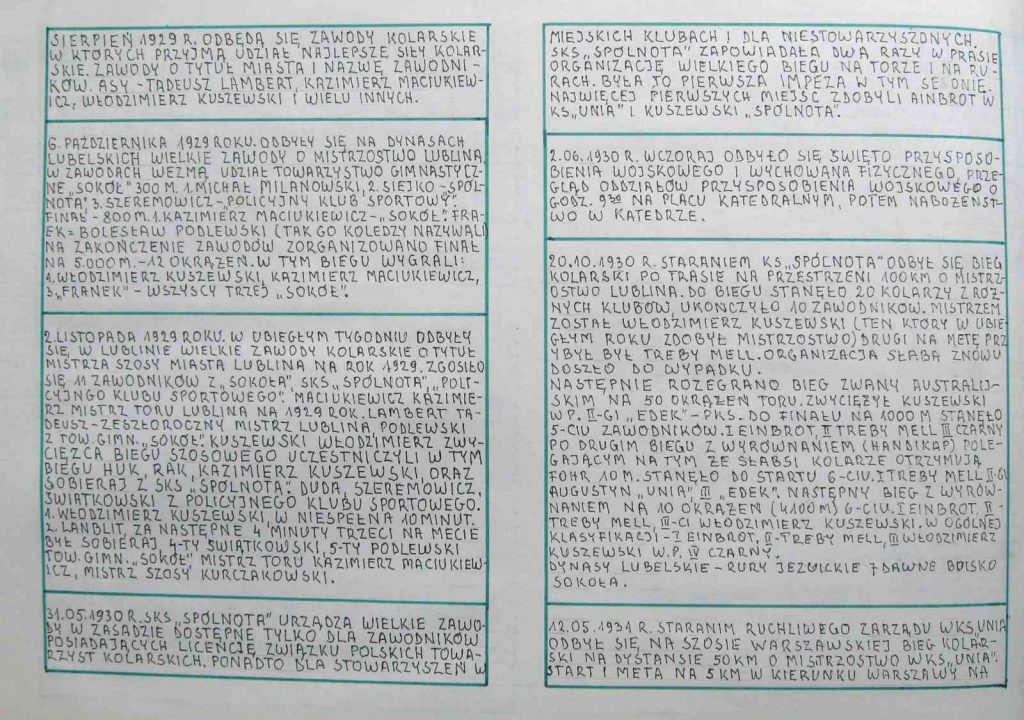 SIERPIEŃ 1929 R. ODBĘDĄ SIĘ ZAWODY KOLARSKIE
W KTÓRYCH PRZYJMĄ UDZIAŁ NAJLEPSZE SIŁY KOLAR-
SKIE. ZAWODY O TYTUŁ MIASTA I NAZWĘ ZAWODNI-
KÓW. ASY - TADEUSZ LAMBERT, KAZIMIERZ MACIUKIEW-
ICZ, WŁODZIMIERZ KUSZEWSKI I WIELU INNYCH.
6. PAŹDZIERNIKA 1929 ROKU. ODBYŁY SIĘ NA DYNASACH
LUBELSKICH WIELKIE ZAWODY O MISTRZOSTWO LUBLINA.
W ZAWODACH WEZMĄ UDZIAŁ TOWARZYSTWO GIMNASTYCZ-
NE „SOKÓŁ" 300 M. 1. MICHAŁ MILANOWSKI, 2. SIEJKO - „SPÓL-
NOTA". 3. SZEREMOWICZ - „POLICYJNY KLUB SPORTOWY".
FINAŁ - 800 M. 1. KAZIMIERZ MACIUKIEWICZ - „SOKÓŁ". FRA-
EK = BOLESŁAW PODLEWSKI (TAK GO KOLEDZY NAZYWALI)
NA ZAKOŃCZENIE ZAWODÓW ZORGANIZOWANO FINAŁ
NA 5.000 M. - 12 OKRĄŻEŃ. W TYM BIEGU WYGRALI:
1. WŁODZIMIERZ KUSZEWSKI, KAZIMIERZ MACIUKIEWICZ,
3. „FRANEK" - WSZYSCY TRZEJ „SOKÓŁ".
2. LISTOPADA 1929 ROKU. W UBIEGŁYM TYGODNIU ODBYŁY
SIĘ, W LUBLINIE WIELKIE ZAWODY KOLARSKIE O TYTUŁ
MISTRZA SZOSY MIASTA LUBLINA NA ROK 1929. ZGŁOSIŁO
SIĘ 11 ZAWODNIKÓW Z „SOKOŁA", SKS „SPÓLNOTA", „POLI-
CYJNGO KLUBU SPORTOWEGO". MACIUKIEWICZ KAZIMIE-
RZ MISTRZ TORU LUBLINA NA 1929 ROK. LAMBERT TA-
DEUSZ - ZESZŁOROCZNY MISTRZ LUBLINA, PODLEWSKI
Z TOW. GIMN. „SOKÓŁ". KUSZEWSKI WŁODZIMIERZ ZWY-
CIĘZCA BIEGU SZOSOWEGO UCZESTNICZYLI W TYM
BIEGU HUK, RAK, KAZIMIERZ KUSZEWSKI, ORAZ
SOBIERAJ Z SKS „SPÓLNOTA". DUDA, SZEREMOWICZ,
ŚWIATKOWSKI Z POLICYJNEGO KLUBU SPORTOWEGO.
1. WŁODZIMIERZ KUSZEWSKI, W NIESPEŁNA 10 MINUT.
2. LANDLIT, ZA NASTĘPNE 4 MINUTY TRZECI NA MECIE
BYŁ SOBIERAJ, 4-TY ŚWIĄTKOWSKI, 5-TY PODLEWSKI
TOW. GIMN. „SOKÓŁ", MISTRZ TORU KAZIMIERZ MACIUKIEW-
ICZ, MISTRZ SZOSY KURCZAKOWSKI.
31.05.1930 R. SKS „SPÓLNOTA" URZĄDZA WIELKIE ZAWO-
DY W ZASADZIE DOSTĘPNE TYLKO DLA ZAWODNIKÓW
POSIADAJĄCYCH LICENCJĘ ZWIĄZKU POLSKICH TOWA-
RZYST KOLARSKICH. PONADTO DLA STOWARZYSZEŃ W
MIEJSKICH KLUBACH I DLA NIESTOWARZYSZONYCH.
SKS „SPÓLNOTA" ZAPOWIADAŁA DWA RAZY W PRASIE
ORGANIZACJĘ WIELKIEGO BIEGU NA TORZE I NA RU-
RACH. BYŁA TO PIERWSZA IMPEZA W TYM SEZONIE.
NAJWIĘCEJ PIERWSZYCH MIEJSC ZDOBYLI AINBROT W
KS „UNIA" I KUSZEWSKI „SPÓLNOTA".
2.06.1930 R. WCZORAJ ODBYŁO SIĘ ŚWIĘTO PRZYSPOSO-
BIENIA WOJSKOWEGO I WYCHOWANA FIZYCZNEGO, PRZE-
GLĄD ODDZIAŁÓW PRZYSPOSOBIENIA WOJSKOWEGO O
GODZ. 9³⁰ NA PLACU KATEDRALNYM, POTEM NABOŻEŃST-
WO W KATEDRZE.
20.10.1930 R. STARANIEM KS „SPÓLNOTA" ODBYŁ SIĘ BIEG
KOLARSKI PO TRASIE NA PRZESTRZENI 100 KM O MISTRZ-
OSTWO LUBLINA. DO BIEGU STANĘŁO 20 KOLARZY Z RÓŻ-
NYCH KLUBÓW, UKOŃCZYŁO 10 ZAWODNIKÓW. MISTRZEM
ZOSTAŁ WŁODZIMIERZ KUSZEWSKI (TEN KTÓRY W UBIE-
GŁYM ROKU ZDOBYŁ MISTRZOSTWO) DRUGI NA METĘ PRZ
YBYŁ BYŁ TREBY MELL. ORGANIZACJA SŁABA ZNÓWU
DOSZŁO DO WYPADKU.
NASTĘPNIE ROZEGRANO BIEG ZWANY AUSTRALIJ-
SKIM NA 50 OKRĄŻEŃ TORU. ZWYCIĘŻYŁ KUSZEWSKI
W P. II-GI „EDEK" - PKS. DO FINAŁU NA 1000 M STANĘŁO
5-CIU ZAWODNIKÓW. I EINBROT, II TREBY MELL III CZARNY
PO DRUGIM BIEGU Z WYRÓWNANIEM (HANDIKAP) POLE-
GAJĄCYM NA TYM ŻE SŁABSI KOLARZE OTRZYMUJĄ
FOHR 10 M. STANĘŁO DO STARTU 6-CIU. I TREBY MELL II-GI
AUGUSTYN „UNIA", III „EDEK". NASTĘPNY BIEG Z WYRÓW-
NANIEM NA 10 OKRĄŻEŃ (4100 M) 6-CIU. I EINBROT, II -
TREBY MELL, III-CI WŁODZIMIERZ KUSZEWSKI. W OGÓLNEJ
KLASYFIKACJI - I EINBROT, II - TREBY MELL, III WŁODZIMIERZ
KUSZEWSKI W.P. IV CZARNY.
DYNASY LUBELSKIE - RURY JEZUICKIE 7 DAWNE BOISKO
SOKOŁA.
12.05.1931 R. STARANIM RUCHLIWEGO ZARZĄDU WKS „UNIA"
ODBYŁ SIĘ, NA SZOSIE WARSZAWSKIEJ BIEG KOLAR-
SKI NA DYSTANSIE 50 KM O MISTRZOSTWO WKS „UNIA".
START I META NA 5 KM W KIERUNKU WARSZAWY NA